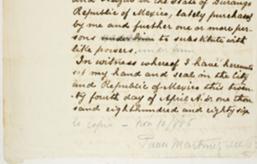 and Negros in the State of Durango
Republic of Mexico, lately purchased
by me and further one or more per-
sons under him to substitute with
like powers. under him
In witness whereof I have hereunto
set my hand and seal in the city
and Republic of Mexico this twen-
ty fourth day of April A.D. one thou
sand eight hundred and eighty six